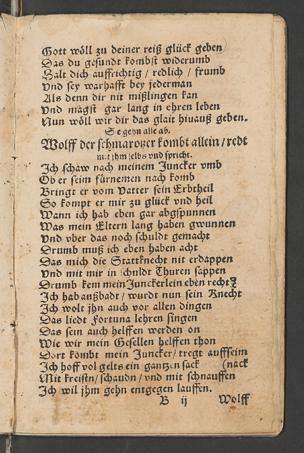 Gott wöll zu deiner reiß glück geben
Das du gesundt kombst widerumb
Halt dich auffrichtig / redlich / frumb
Vnd sey warhafft bey jederman
Als denn dir nit mißlingen kan
Vnd magst gar lang in ehren leben
Nun wöll wir dir das glait hinauß geben.
Sie gehn alle ab.
Wolff der schmarotzer kombt allein / redt
mit jhm selbs vnd spricht.
Ich schaw nach meinem Juncker vmb
Ob er seim fürnemen nach komb
Bringt er vom Vatter sein Erbtheil
So kompt er mir zu glück vnd heil
Wann ich hab eben gar abgspunnen
Was mein Eltern lang haben gwunnen
Vnd vber das noch schuldt gemacht
Drumb muß ich eben haben acht
Das mich die Stattknecht nit erdappen
Vnd mit mir in schuldt Thuren sappen
Drumb kem mein Junckerlein eben recht
Ich hab außbadt / wurdt nun sein Knecht
Ich wolt jhn auch vor allen dingen
Das liedt Fortuna lehren singen
Das sein auch helffen werden on
Wie wir mein Gesellen helffen thon
Dort kombt mein Juncker / tregt auff seim
Ich hoff vol gelts ein gantzen sack (nack
Mit kreistn / schaudn / vnd mit schnauffen
Ich wil jhm gehn entgegen lauffen.
B ij Wolff